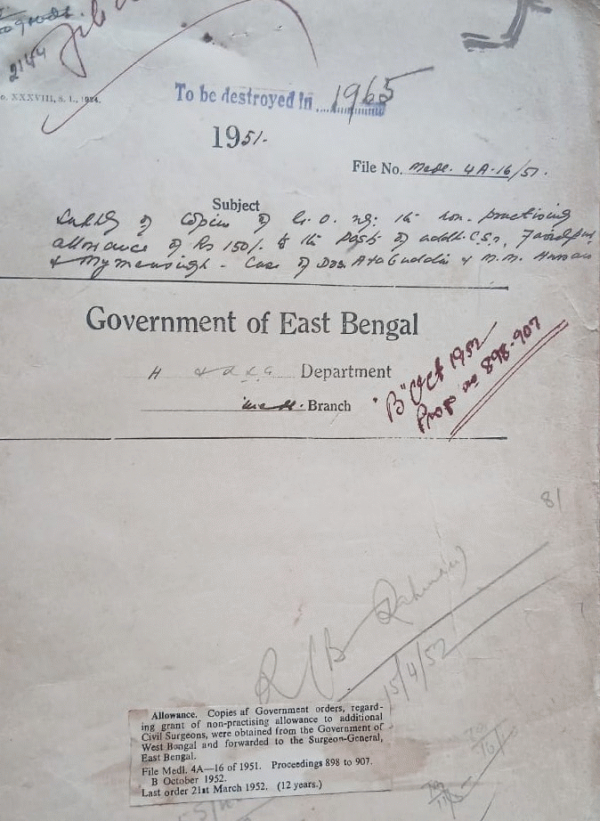 2144
To be destroyed in 1965
1951.
File No. Medl. 4A-16/51.
Subject
Supply of copies of G.O. rg: the non-practising
allowance of Rs 150/- to the posts of addl. C.Ss, Faridpur
& Mymensingh - Case of Drs. & M.M. Hassan
Government of East Bengal
H Department
Medl. Branch
"B" Oct 1952
Progs nos 898-907
81
Rahman
15/4/52
Allowance. Copies af Government orders, regard-
ing grant of non-practising allowance to additional
Civil Surgeons, were obtained from the Government of
West Bangal and forwarded to the Surgeon-General,
East Bengal.
File Medl. 4A—16 of 1951. Proceedings 898 to 907.
B October 1952.
Last order 21st March 1952. (12 years.)